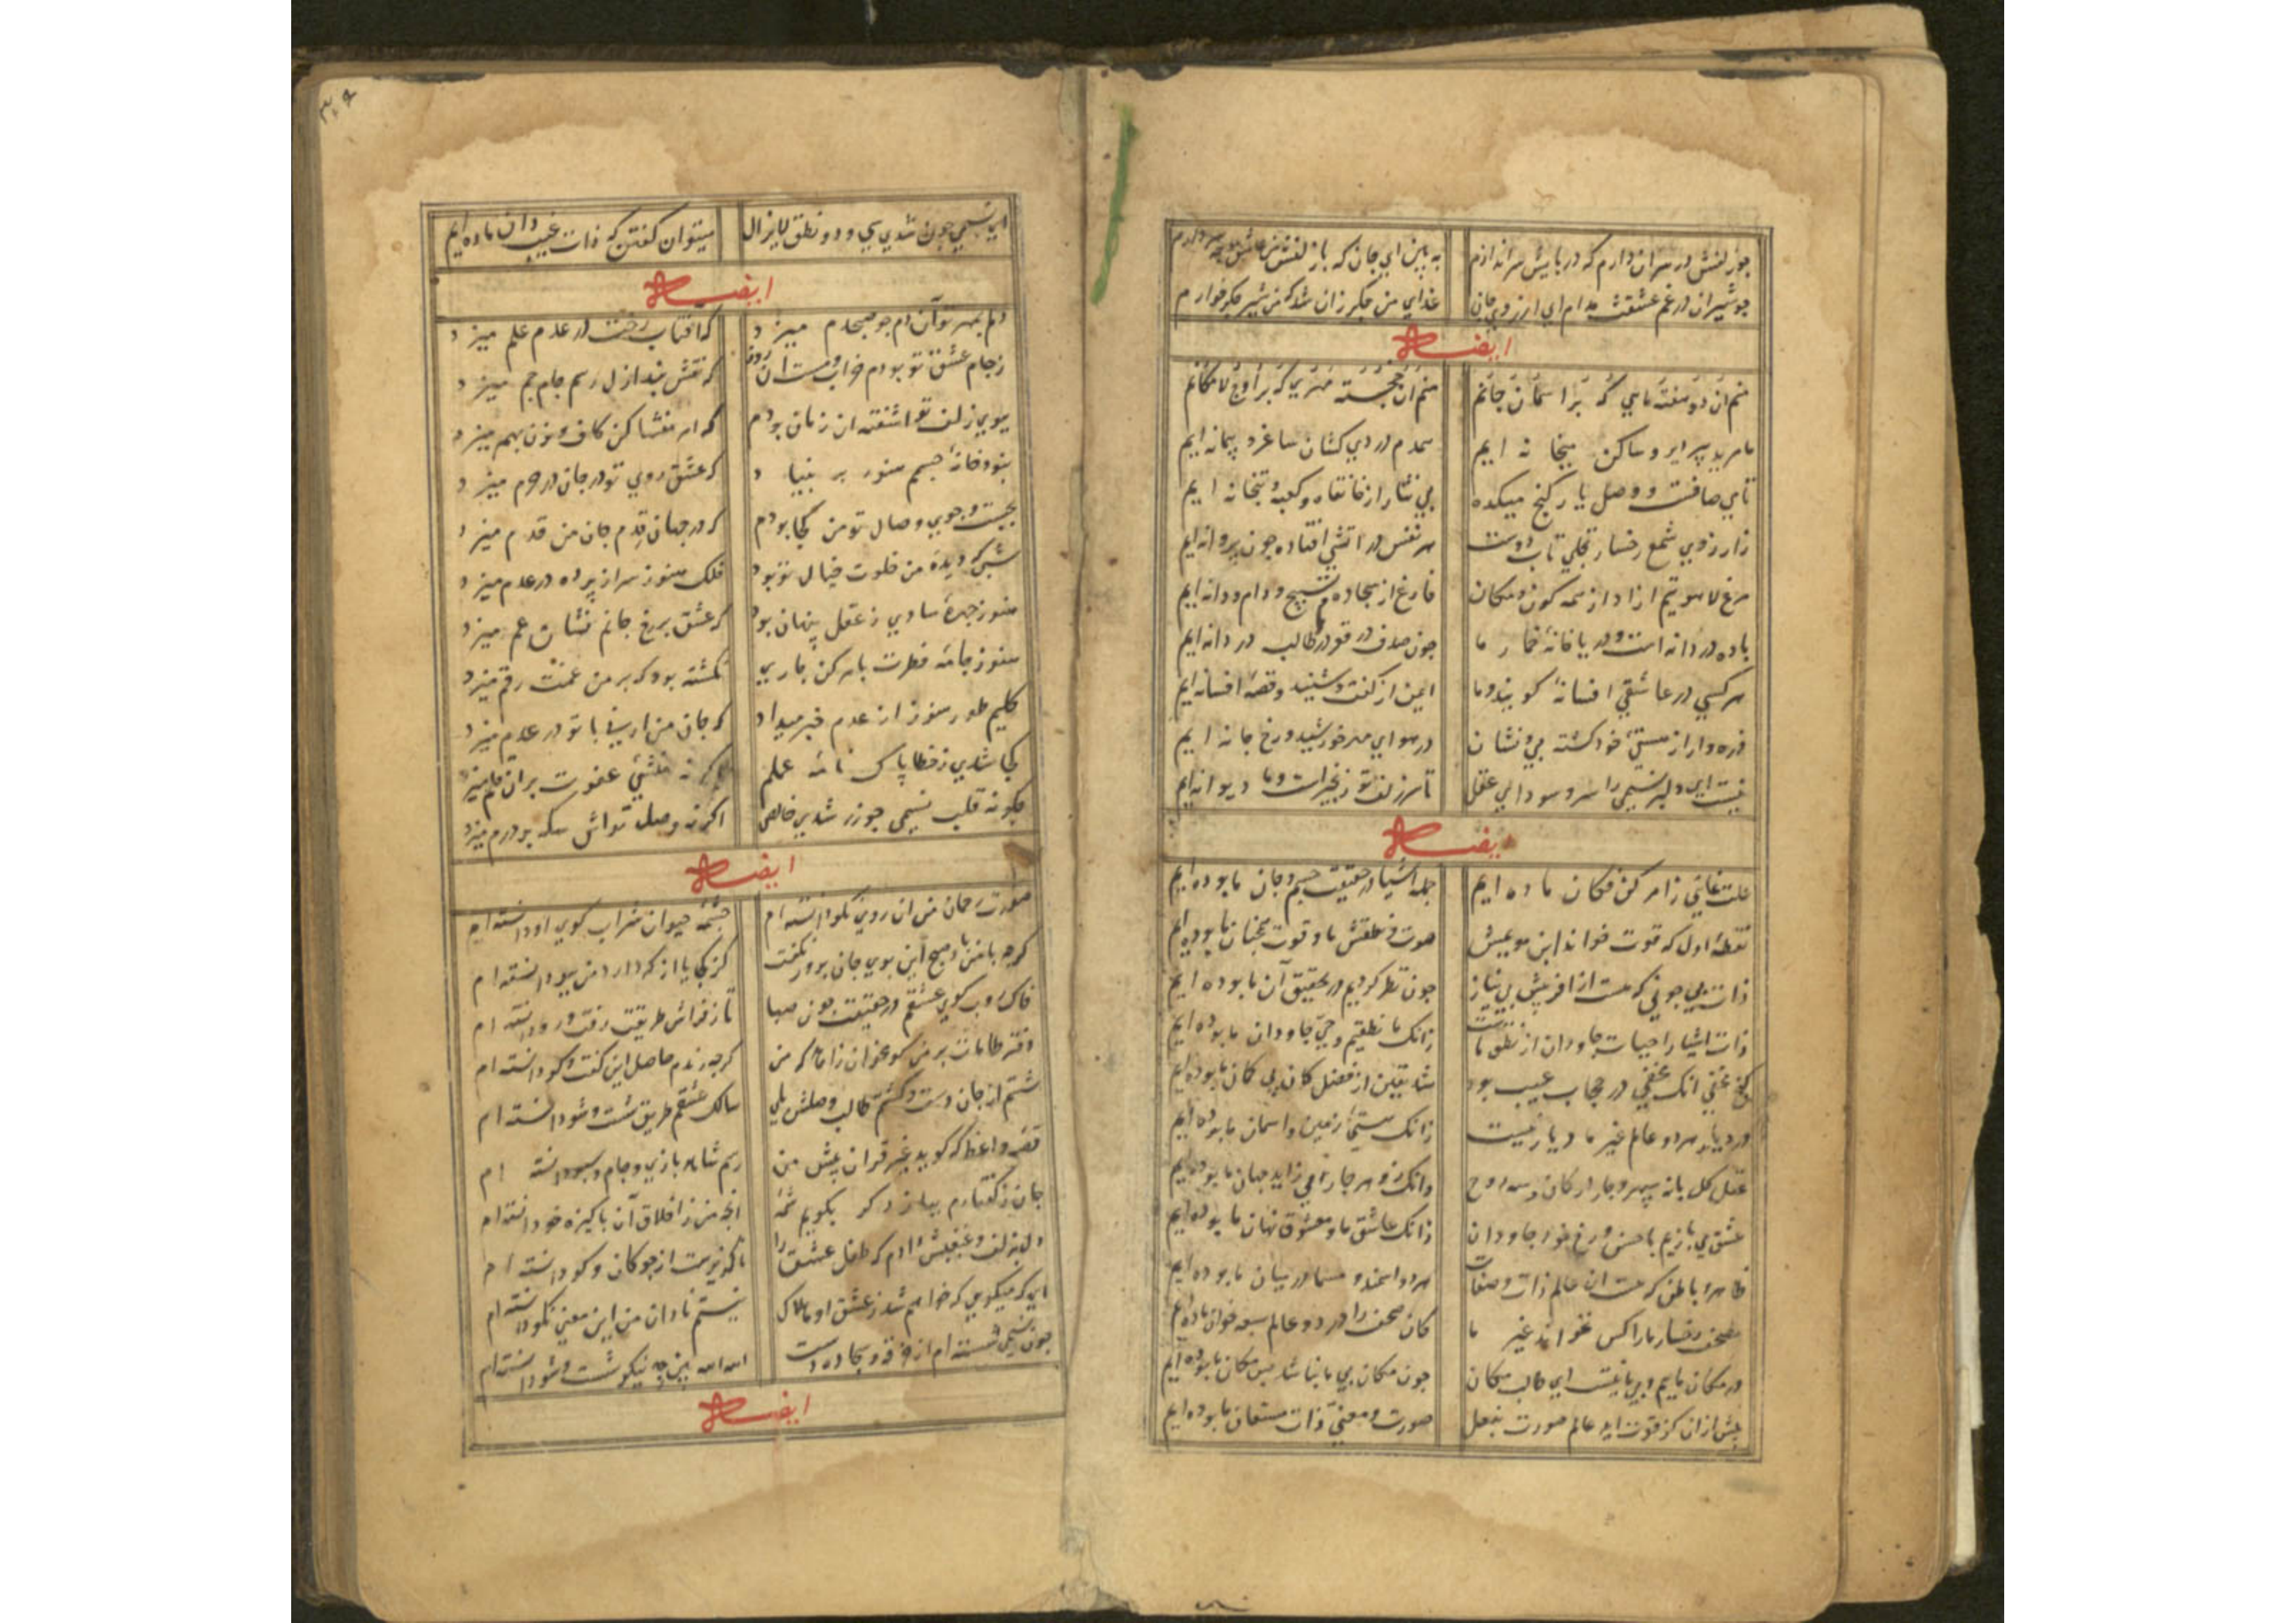 چو زلفش در سر آن دارم که در پایش سر اندازم
به بین ای جان که با زلفش ز عشقش
چو شیران در غم عشقت مدام ای آرزوی جان
غذای من جگر زان شد که من شیر جگر خوارم
ایضاله
منم آن دو هفته ماهی که بر آسمان جانم
منم آن خجسته که بر اوج لامکانم
ما مرید پیر دیر و ساکن میخانه ایم
همدم دردی کشان ساغر و پیمانه ایم
تا می صافست و وصل یار کنج میکده
بی نیاز از خانقاه و کعبه و بتخانه ایم
زارزوی شمع رخسار تجلی تاب دوست
هر نفس در آتشی افتاده چون پروانه ایم
مرغ لاهوتیم آزاد از همه کون و مکان
فارغ از سجاده و تسبیح و دام و دانه ایم
باده دردانه است و دریا خانهٔ خمار ما
چون صدف در قعر دریا طالب دردانه ایم
هر کسی در عاشقی افسانهٔ کویند و ما
ایمن از کفت و شنید و قصهٔ افسانه ایم
ذره وار از هستی خود کشته بی نشان
در هوای مهر خورشید رخ جانانه ایم
نیست ای دلبر نسیمی را سر و سودای عقل
تا سر زلف تو زنجیر است و ما دیوانه ایم
ایضاله
علت غائی ز امر کن فکان ما بوده ایم
جمله اشیا در حقیقت جسم و جان ما بوده ایم
نقطهٔ اول که قوت خواند این مویش
صوت و نطقش ما و قوت بخشان ما بوده ایم
ذات بی چونی که هست از آفرینش بی نیاز
چون نظر کردیم در تحقیق آن ما بوده ایم
ذات اشیا را حیات جاودان از نطق ماست
زانک ما نطقیم و حی جاودان ما بوده ایم
کنج مخفی آنک مخفی در حجاب غیب بود
شد یقین از فضل کان بی کان ما بوده ایم
در دیار هر دو عالم غیر ما دیار نیست
زانک هستی زمین و آسمان ما بوده ایم
عقل کل با نه سپهر و چار ارکان و سه روح
وانک زو هر چار می زاید جهان ما بوده ایم
عشق می بازیم با حسن رخ خود جاودان
زانک عاشق ما و معشوق نهان ما بوده ایم
ظاهر و باطن که هست آن عالم ذات و صفات
هر دو اسمند و مسما در بیان ما بوده ایم
مصحف رخسار ما را کس نخواند غیر ما
کان مصحف را در دو عالم سبعه خوان ما بوده ایم
در مکان مائیم و بی ما نیست ای طالب مکان
چون مکان بی ما نباشد پس مکان ما بوده ایم
پیش از آن کز قوت آید عالم صورت بفعل
صورت و معنی ذات مستعان ما بوده ایم
ای نسیمی چون شدی سی و دو نطق لایزال
میتوان کفتن که ذات غیب دان ما بوده ایم
ایضاله
دلم بمهر تو آن دم چو صبحدم میزد
که آفتاب رخت در عدم علم میزد
ز جام عشق تو بودم خراب و مست آن روز
که نقش بند ازل رسم جام جم میزد
ببوی زلف تو آشفته آن زمان بودم
که امر منشا کن کاف و نون بهم میزد
نبود خانهٔ جسمم هنوز بر بنیاد
که عشق روی تو در جان در حرم میزد
بجست و جوی وصال تو من کجا بودم
که در جهان قدم جان من قدم میزد
شبی که دیدهٔ من خلوت خیال تو بود
فلک هنوز سراپرده در عدم میزد
هنوز چهرهٔ ساوی ز عقل پنهان بود
که عشق بر رخ جانم نشان غم میزد
هنوز جامه فطرت بامر کن جاری
نکشته بود که بر من غمت رقم میزد
کلیم طور هنوز از عدم خبر میداد
که جان من ارنی با تو در عدم میزد
کجا شدی ز خطا پاک نامهٔ عملم
اگر نه منشی عفوت بران قلم میزد
چکونه قلب نسیمی چو زر شدی خالص
اکر نه وصل تواش سکه بر درم میزد
ایضاله
صورت رحمان من آن روی نکو دانسته ام
چشمهٔ حیوان شراب کوی او دانسته ام
کرچه با من باد صبح این بوی جان پرور نکفت
کز کجا یا از که دارد من ببو دانسته ام
خاک روب کوی عشقم در حقیقت چون صبا
تا ز فراش طریقت رفت و رو دانسته ام
دفتر طامات بر من کو مخوان زاهد که من
کرچه رندم حاصل این کفت و کو دانسته ام
شستم از جان دست و کشتم طالب وصلش بلی
سالک عشقم طریق شست و شو دانسته ام
قصه واعظ که کوید غیر قرآن پیش من
رسم شاهد بازی و جام و سبو دانسته ام
جان ز کفتارم بیاز د کر بکویم شمهٔ
آنچه من ز اخلاق آن پاکیزه خو دانسته ام
دل بزلف و غبغبش دادم که طفل عشق را
ناکزیرست از چوکان و کو دانسته ام
ای که میکویی که خواهم شد ز عشق او هلاک
نیستم نادان من این معنی نکو دانسته ام
چون نسیمی شسته ام از خرقه و سجاده دست
الله الله بین چه نیکو شست و شو دانسته ام
ایضاله